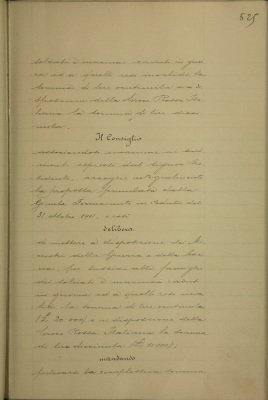 525
soldati e marinai caduti in guer
ra ed a quelli resi invalidi la
somma di lire ventimila e a di
sposizione della Croce Rossa Ita
liana la somma di lire dieci
mila.
Il Consiglio
associandosi unanime ai sen
timenti espressi dal Signor Pre
sidente, accoglie integralmente
la proposta formulata dalla
Giunta Permanente in seduta del
31 ottobre 1911, e così
delibera
di mettere a disposizione dei Mi
nistri della Guerra e della Ma
rina, per sussidi alle famiglie
dei soldati e marinai caduti
in guerra ed a quelli resi inva
lidi la somma di lire ventimila
(L. 20.000) e a disposizione della
Croce Rossa Italiana la somma
di lire diecimila (L. 10.000);
mandando
prelevare la complessiva somma